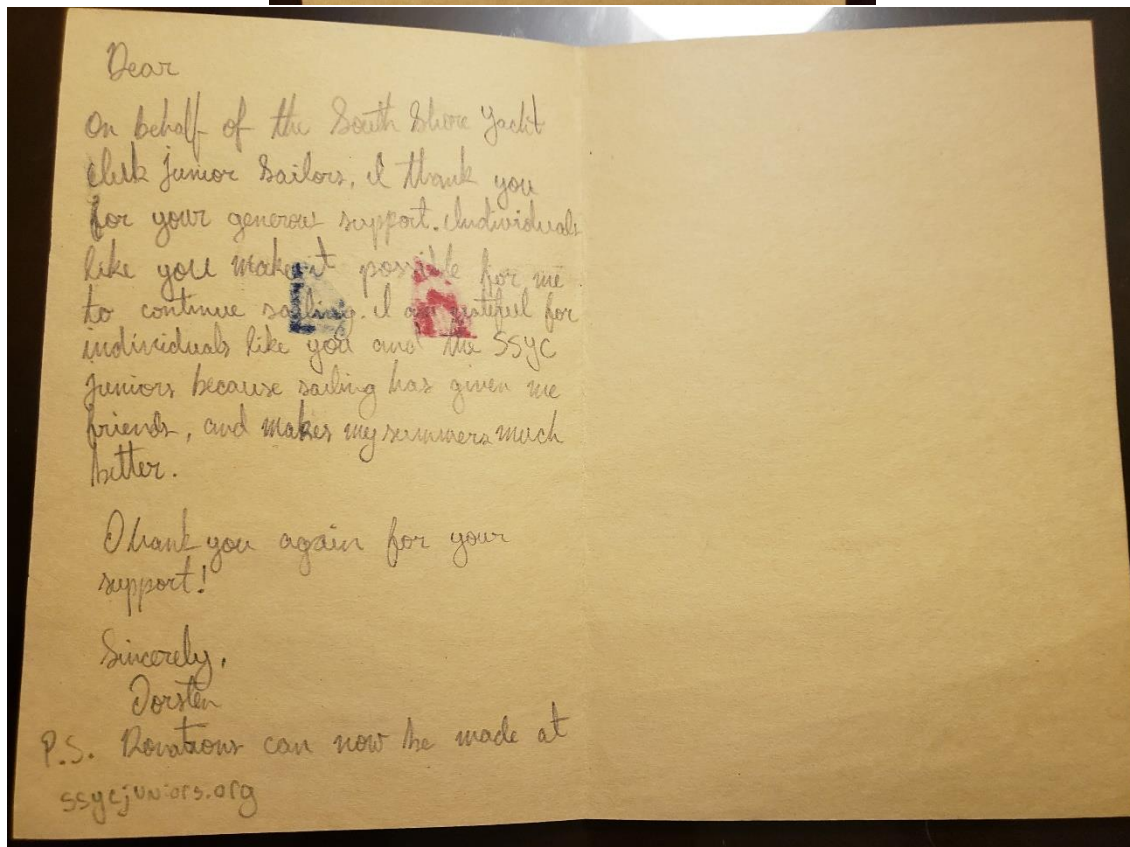 Dear
On behalf of the South Shore Yacht
Club Junior Sailors, I thank you
for your generous support. Individuals
like you make it possible for me
to continue sailing. I am grateful for
individuals like you and the SSYC
Juniors because sailing has given me
friends, and makes my summers much
better.
Thank you again for your
support!
Sincerely,
Torsten
P.S. Donations can now be made at
ssycjuniors.org